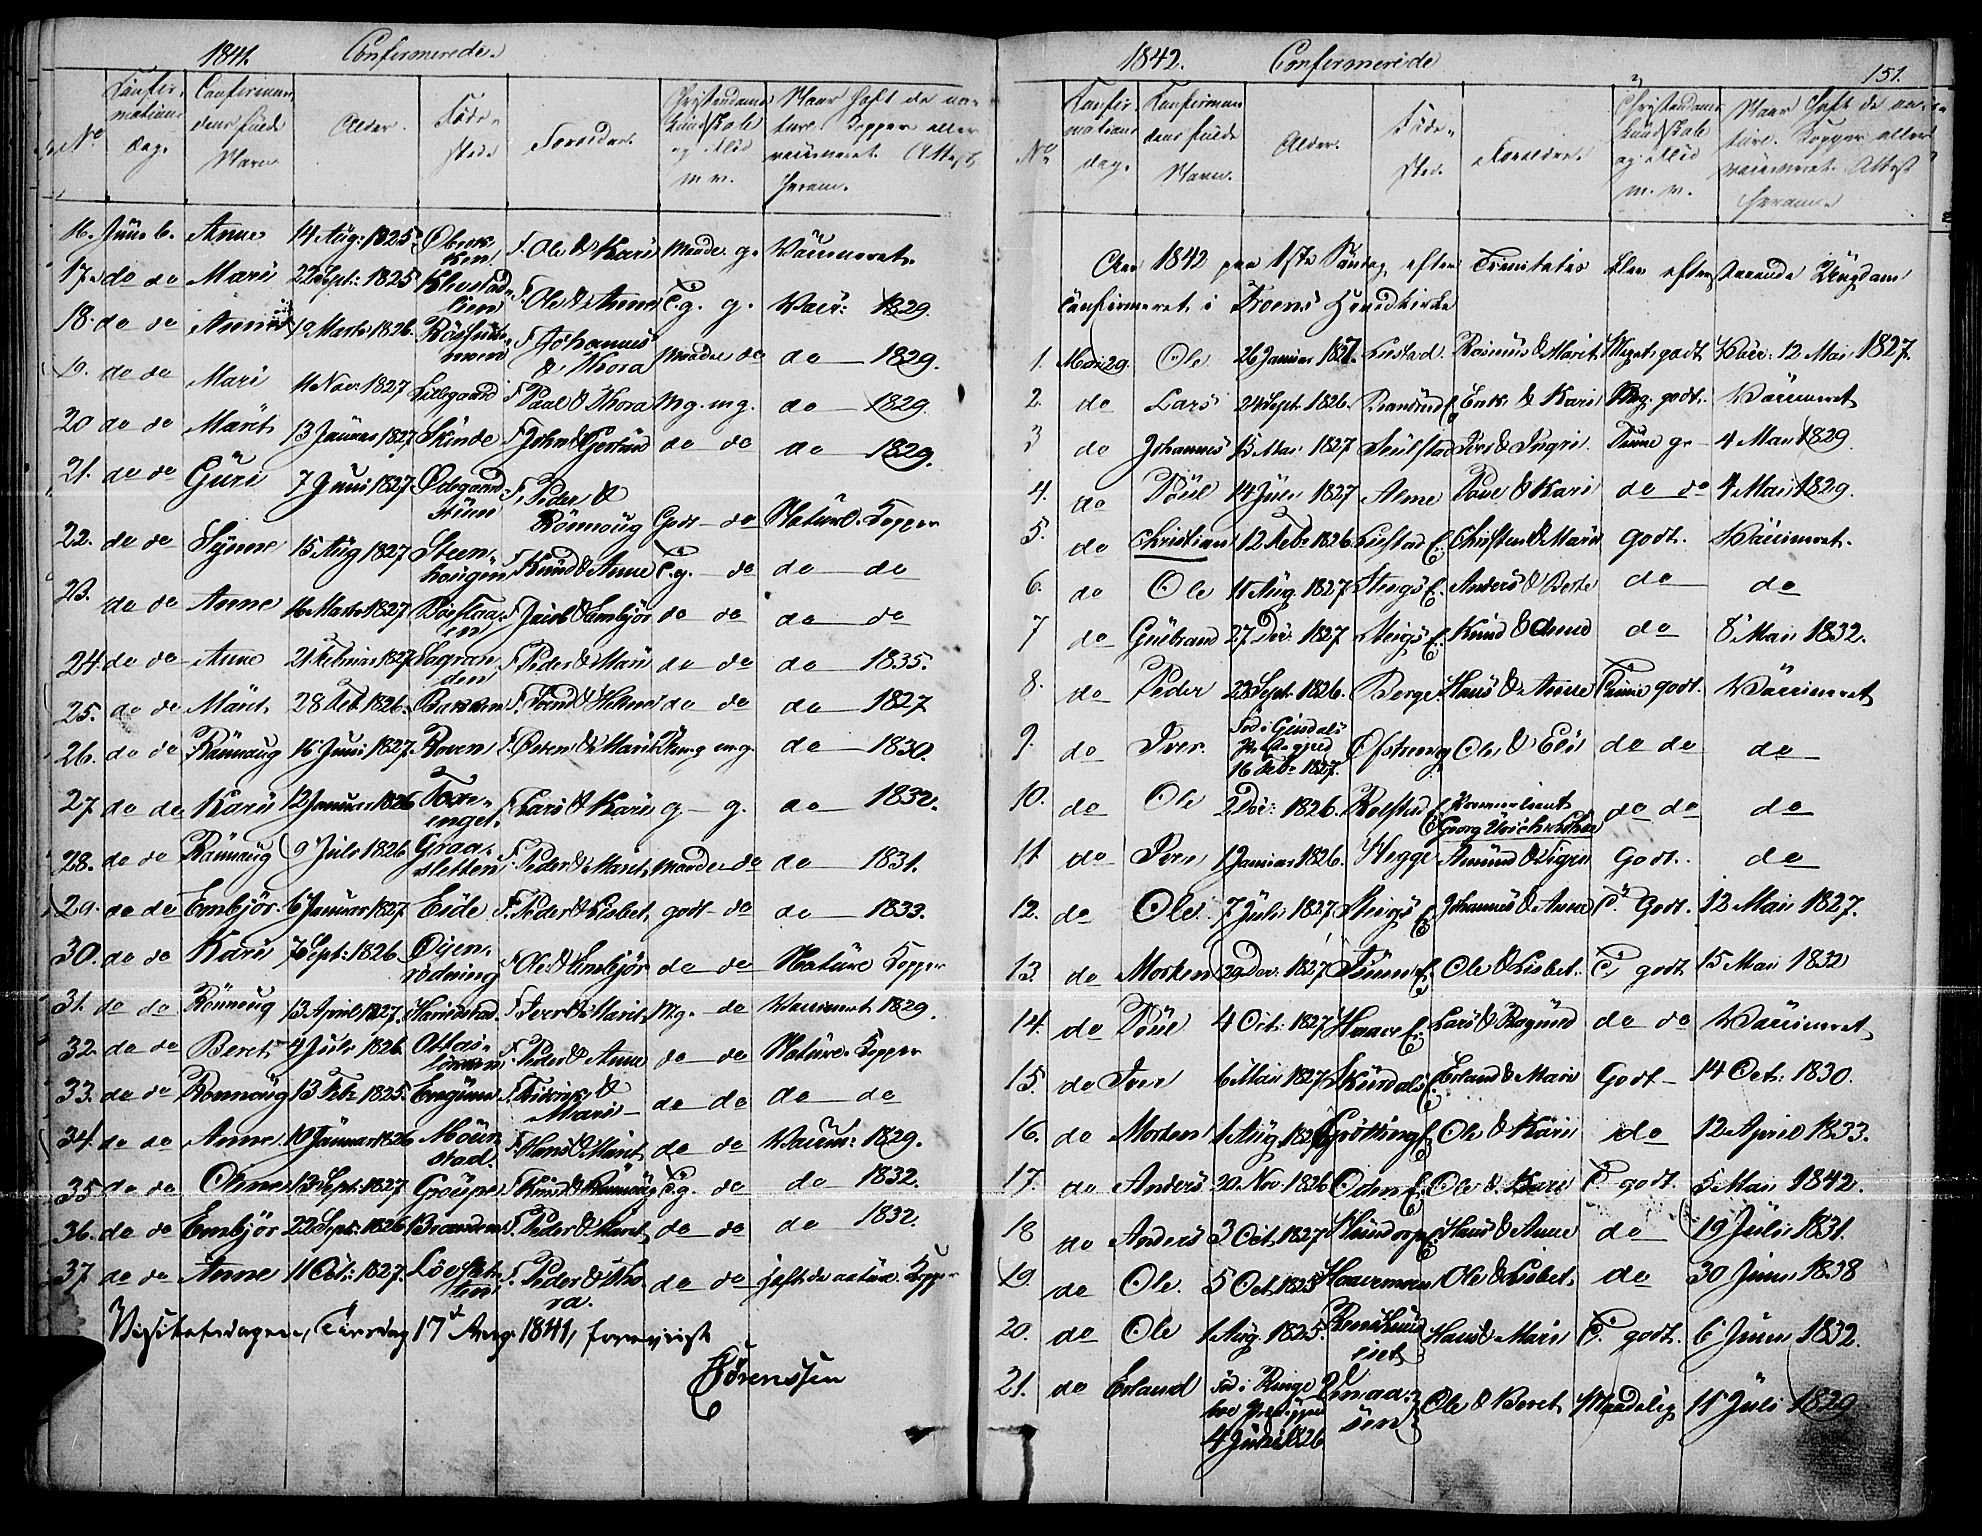 1841. Confirmerede.
No
Confirmations Dag.
Confirmandens fulde Navn
Alder.
Fødested
Forældre.
Christendoms Kundskab og Flid m. v.
Naar haft de naturl. Kopper eller vaccineret. Attest herom.
16. Juni 6. Anne 14 Aug: 1825 F. Ole & Kari maadl. g. Vaccineret.
17. do do Mari 22 Sept: 1825 Klevstadlien F. Ole & Anne T. g. g. Vacc: 1829.
18. do do Anne 19 Marts 1826. F. Johannes & Thora Maadel. do do 1829.
19. do do Mari 11 Nov: 1827 Lillegaard F. Paal & Thora M.g. m.g. do 1829.
20 do do Marit 13 Januar 1827 Skinde F. John & Gertrud do do do 1829.
21. do do Guri 7 Juni 1827 Ødegaard F. Peder & Rønnoug Godt do Naturl. Kopper
22. do do Synne 15 Aug 1827 Steenhaugen F. Knud & Anne T. g. do do do
23. do do Anne 16 Marts 1827 F. Jacob & Embjør do do do do
24. do do Anne 21 Februar 1827 Sagranden F. Peder & Mari do do do 1835.
25. do do Marit 28 Feb. 1826. Bakken F. do do do 1827
26. do do Rønnaug 16 Juni 1827. Roven F. Østen & Marit m.g. do 1830.
27. do do Kari 12 Januar 1826 F. Lars & Kari g. g. do 1832.
28. do do Rønnaug 9 Juli 1826 Graasletten F. Peder & Marit maadel. do do 1831.
29. do do Embjør. 6 Januar 1827. Eide F. Peder & Lisbet godt do do 1833.
30. do do Kari 7 Sept: 1826. Øienrødning F. Ole & Embjør do do Naturl. Kopper
31. do do Rønnoug 13 April 1827. F. Iver & Marit M.g. do Vaccineret 1829.
32. do do Beret 4 Juli 1826 F. Peder & Anne do do Naturl. Kopper
33. do do Rønnoug 13 Feb: 1825. F. & Mari do do do do
34. do do Anne 10 Januar 1826 F. Hans & Marit do do Vaccin: 1829.
35 do do Anne 13 Sept: 1827 F. Knud & Rønnoug T. g. do do 1832.
36. do do Embjør 22 Sept. 1826 Brænden F. Peder & Marit do do do 1832.
37 do do Anne 11 Oct: 1827. F. Peder & Thora. do do haft de naturl. Kopper
Visitatsdagen, Tirsdag 17d Aug. 1841, forevist
Sørenssen
1842. Confirmerede 151.
No
Confirmations dag.
Confirmandens fulde Navn.
Alder.
Fødested.
Forældre.
Christendoms Kundskab og Flid m. v.
Naar haft de naturl. Kopper eller vaccineret. Attest herom.
Aar 1842 paa 1ste Søndag efter Trinitatis blev efterstaaende Ungdom
confirmeret i Froens Hovedkirke
1. Mai 29. Ole 26 Januar 1827. Listad Rasmus & Marit Meget godt Vacc: 12 Mai 1827.
2. do Lars 24 Sept. 1826. Erik & Kari M.g. godt. Vaccineret
3 do Johannes 15 Mai 1827 Iver & Ingri Temme g. 4 Mai 1829.
4. do Poul 14 Juli 1827 Alme Tove & Kari do do 4 Mai 1829.
5. do Christian 12 Feb: 1826 Listad E. Christen & Mari godt. Vaccineret.
6. do Ole 11 Aug. 1827. Steigs E. Anders & Berte do do
7 do Gudbrand 27 Dec. 1827 Steigs E. Knud & Anne do 8 Mai 1832.
8. do Peder 22 Sept. 1826. Berge Hans & Anne Temme godt. Vaccineret
9. do Iver. Fød i Gusdals Prstgjeld 16 Feb: 1827. Ofstreng Ole & Eli do do do
10. do Ole 2 Dec: 1826. Rolstad E. Georg Ulrich do do do
11 do Iver 1 Januar 1826. Hegge Amund & Sigri Godt. do
12. do Ole 7 Juli 1827. Steigs E. Johannes & Anne T. Godt. 12 Mai 1827.
13. do Morten 29 Dec. 1827 E. Ole & Lisbet. T. godt 15 Mai 1832
14. do Poul 4 Oct: 1827 Haave E. Lars & Ragnild do do Vaccineret
15. do Iver 6 Mai 1827 E. Erland & Mari Godt 14 Oct: 1830.
16. do Morten 1 Aug 1827 Grytting E. Ole & Kari do 12 April 1833.
17. do Anders 20 Nov. 1826 Oden E. Ole & Kari T. godt. 5 Mai 1842.
18 do Anders 3 Oct. 1827 Hundorp E. Hans & Anne do 19 Juli 1831.
19. do Ole. 5 Oct. 1825 Haavemoen Ole & Lisbet. do 30 Juni 1838
20. do Ole 1 Aug. 1825. Hans & Mari T. godt. 6 Juni 1832.
21. do Erland Fød i Ringeboe Prstgjeld 4 Juli 1826 Ole & Beret Maadelig 11 Juli 1829